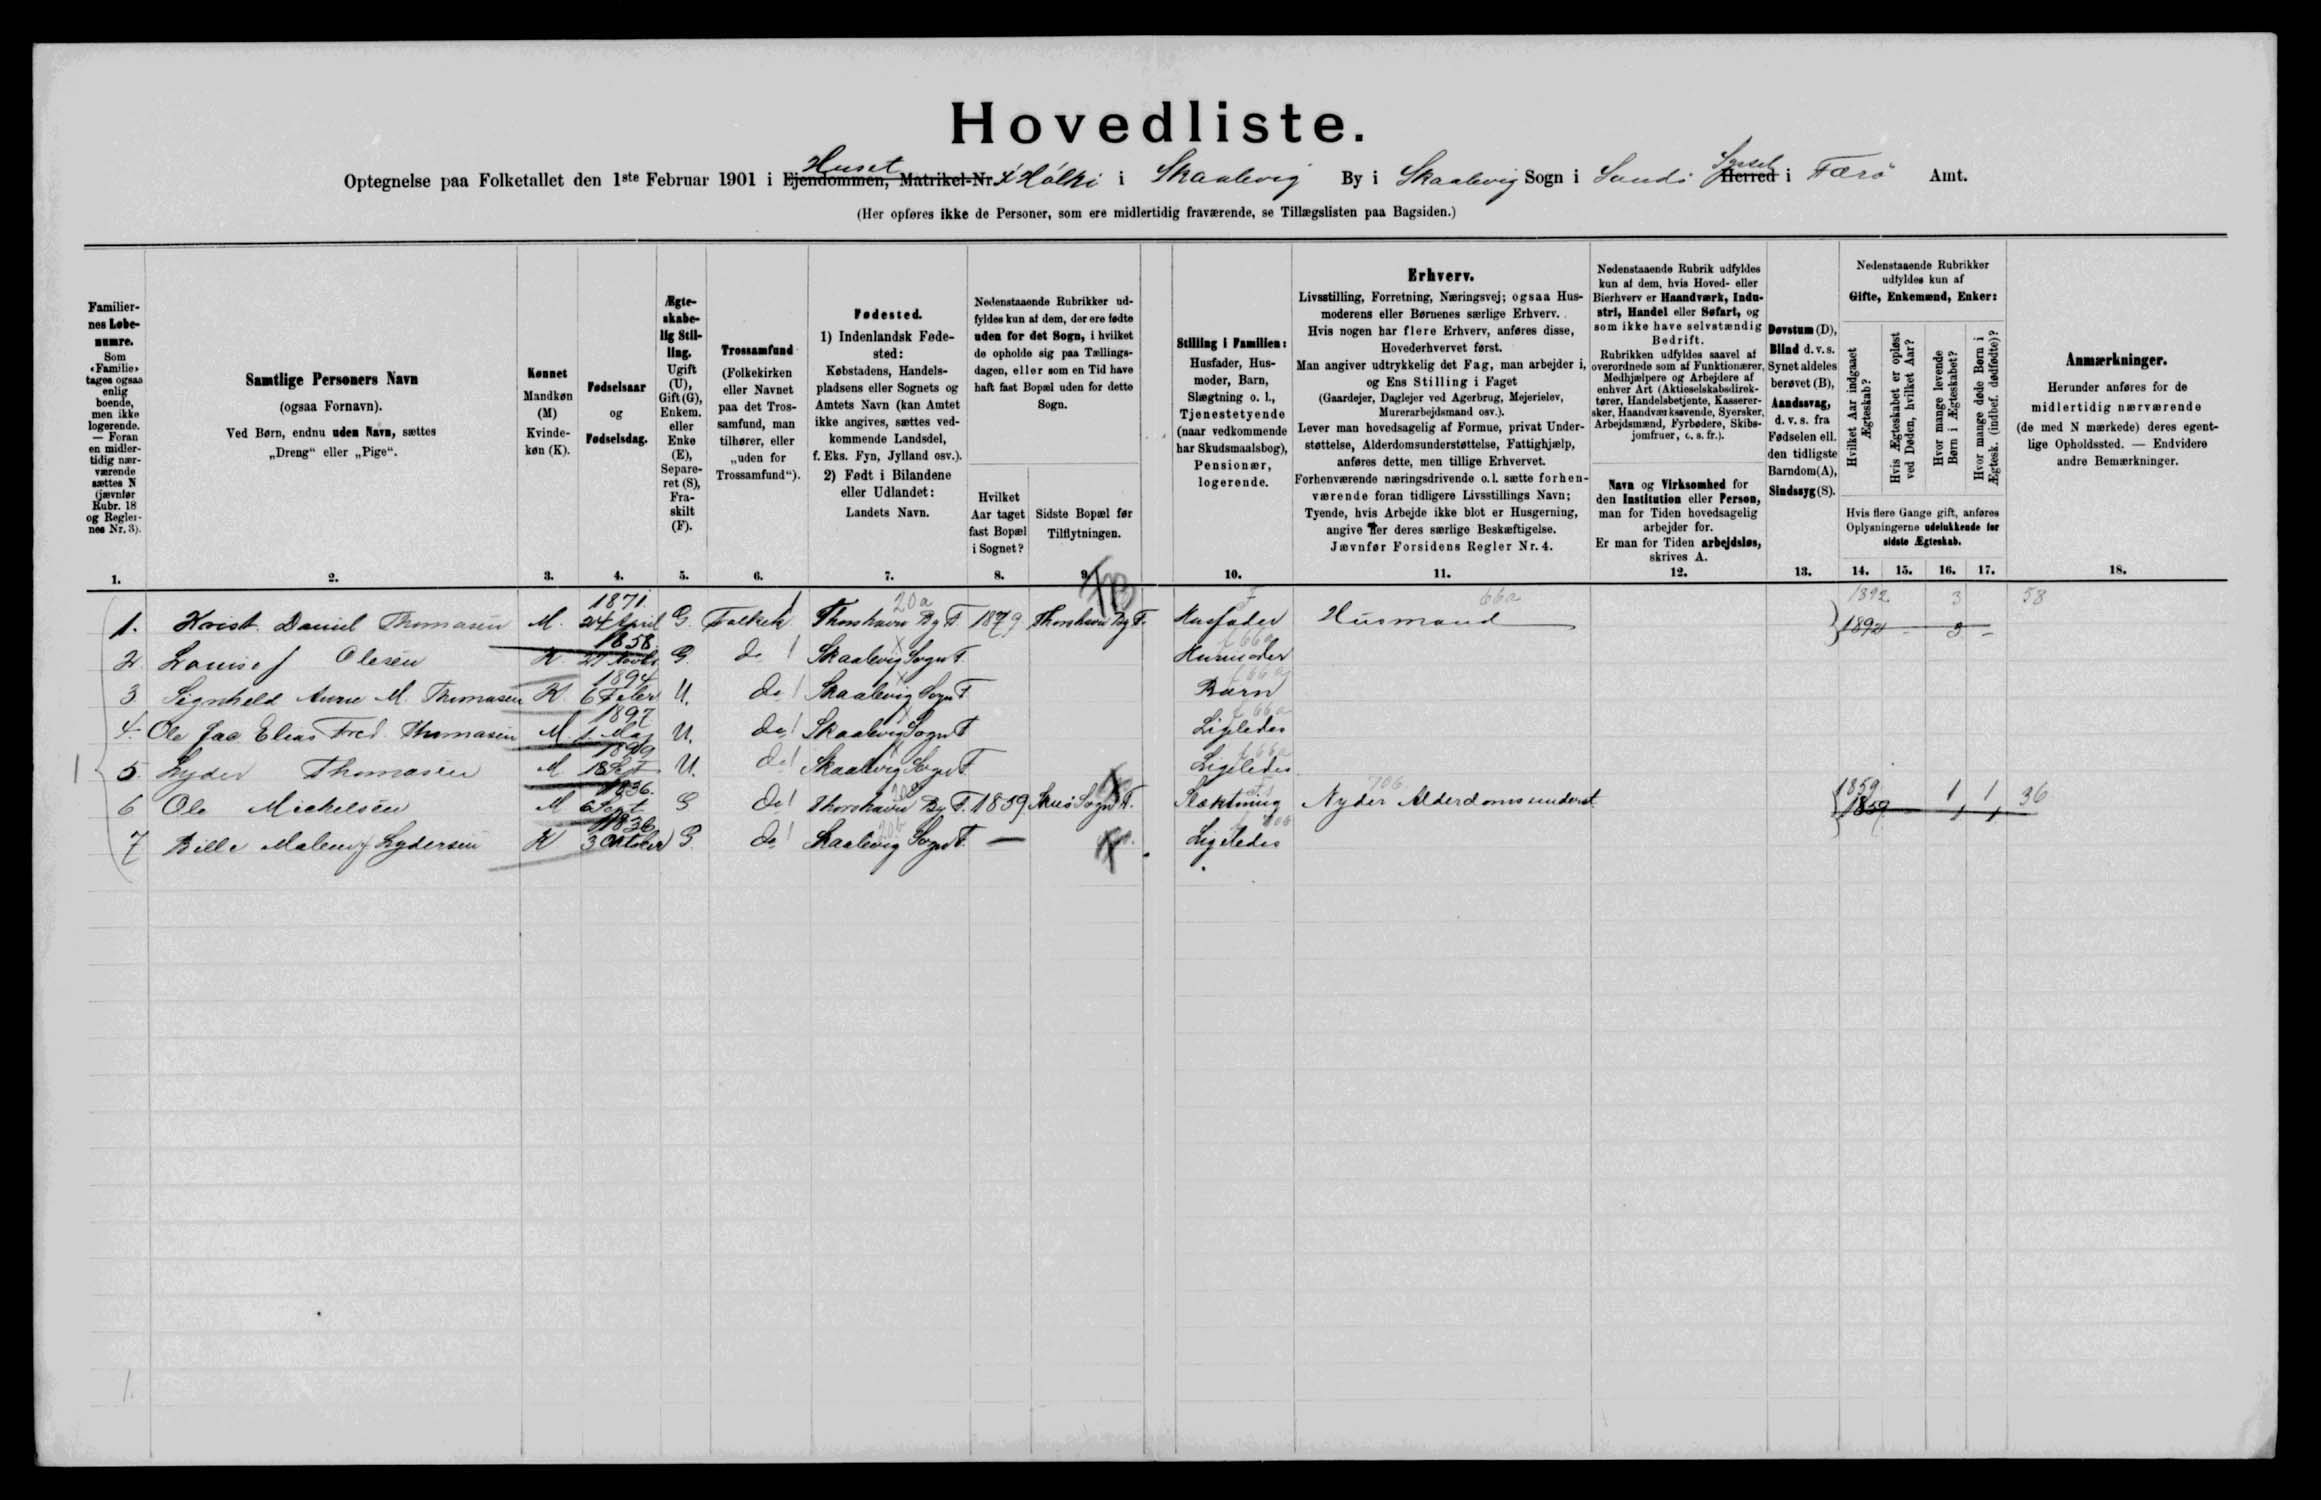 Hovedliste.
Optegnelse paa Folketallet den 1ste Februar 1901 i Huset Ejendommen, Matrikel-Nr. i Hólki i Skaalevig By i Skaalevig Sogn i Sandö Syssel Herred i Færö Amt.
(Her opføres ikke de Personer, som ere midlertidig fraværende, se Tillægslisten paa Bagsiden.)
Familier-
nes Løbe-
numre.
Som
«Familie»
tages ogsaa
enlig
boende,
men ikke
logerende.
— Foran
en midler-
tidig nær-
værende
sættes N
(jævnfør
Rubr. 18
og Regler-
nes Nr. 3).
1.
Samtlige Personers Navn
(ogsaa Fornavn).
Ved Børn, endnu uden Navn, sættes
„Dreng“ eller „Pige“.
2.
Kønnet
Mandkøn
(M)
Kvinde-
køn (K).
3.
Fødselsaar
og
Fødselsdag.
4.
Ægte-
skabe-
lig Stil-
ling.
Ugift
(U),
Gift (G),
Enkem.
eller
Enke
(E),
Separe-
ret (S),
Fra-
skilt
(F).
5.
Trossamfund
(Folkekirken
eller Navnet
paa det Tros-
samfund, man
tilhører, eller
„uden for
Trossamfund“).
6.
Fødested.
1) Indenlandsk Føde-
sted:
Købstadens, Handels-
pladsens eller Sognets og
Amtets Navn (kan Amtet
ikke angives, sættes ved-
kommende Landsdel,
f. Eks. Fyn, Jylland osv.).
2) Født i Bilandene
eller Udlandet:
Landets Navn.
7.
Nedenstaaende Rubrikker ud-
fyldes kun af dem, der ere fødte
uden for det Sogn, i hvilket
de opholde sig paa Tællings-
dagen, eller som en Tid have
haft fast Bopæl uden for dette
Sogn.
Hvilket
Aar taget
fast Bopæl
i Sognet?
8.
Sidste Bopæl før
Tilflytningen.
9.
Stilling i Familien:
Husfader, Hus-
moder, Barn,
Slægtning o. l.,
Tjenestetyende
(naar vedkommende
har Skudsmaalsbog),
Pensionær,
logerende.
10.
Erhverv.
Livsstilling, Forretning, Næringsvej; ogsaa Hus-
moderens eller Børnenes særlige Erhverv.
Hvis nogen har flere Erhverv, anføres disse,
Hovederhvervet først.
Man angiver udtrykkelig det Fag, man arbejder i,
og Ens Stilling i Faget
(Gaardejer, Daglejer ved Agerbrug, Mejerielev,
Murerarbejdsmand osv.).
Lever man hovedsagelig af Formue, privat Under-
støttelse, Alderdomsunderstøttelse, Fattighjælp,
anføres dette, men tillige Erhvervet.
Forhenværende næringsdrivende o. l. sætte forhen-
værende foran tidligere Livsstillings Navn;
Tyende, hvis Arbejde ikke blot er Husgerning,
angive her deres særlige Beskæftigelse.
Jævnfør Forsidens Regler Nr. 4.
11.
Nedenstaaende Rubrik udfyldes
kun af dem, hvis Hoved- eller
Bierhverv er Haandværk, Indu-
stri, Handel eller Søfart, og
som ikke have selvstændig
Bedrift.
Rubrikken udfyldes saavel af
overordnede som af Funktionærer,
Medhjælpere og Arbejdere af
enhver Art (Aktieselskabsdirek-
tører, Handelsbetjente, Kasserer-
sker, Haandværkssvende, Syersker,
Arbejdsmænd, Fyrbødere, Skibs-
jomfruer, o. s. fr.).
Navn og Virksomhed for
den Institution eller Person,
man for Tiden hovedsagelig
arbejder for.
Er man for Tiden arbejdsløs,
skrives A.
12.
Døvstum (D),
Blind d. v. s.
Synet aldeles
berøvet (B),
Aandssvag,
d. v. s. fra
Fødselen ell.
den tidligste
Barndom (A),
Sindssyg (S).
13.
Nedenstaaende Rubrikker
udfyldes kun af
Gifte, Enkemænd, Enker:
Hvilket Aar indgaaet
Ægteskab?
Hvis Ægteskabet er opløst
ved Døden, hvilket Aar?
Hvor mange levende
Børn i Ægteskabet?
Hvor mange døde Børn i
Ægtesk. (indbef. dødfødte)?
Hvis flere Gange gift, anføres
Oplysningerne udelukkende for
sidste Ægteskab.
14. 15. 16. 17.
Anmærkninger.
Herunder anføres for de
midlertidig nærværende
(de med N mærkede) deres egent-
lige Opholdssted. — Endvidere
andre Bemærkninger.
18.
1871 20a 66a 1892 3 58
1. Krist. Daniel Thomasen M. 24 April G. Folkek. Thorshavn By F. 1879 Thorshavn By F. Husfader Husmand 1892 - 3 -
1858
2. Louise f Olesen K. 27 Novbr G. do Skaalevig Sogn F. Husmoder
1894
3 Signhild Anne M. Thomasen K 6 Febr U. do Skaalevig Sogn F. Barn
1897
4. Ole Jac. Elias Fred. Thomasen M. 1. Maj U. do Skaalevig Sogn F. Ligeledes
1899
5. Lyder Thomasen M. 18 Sept U. do Skaalevig Sogn F. Ligeledes
1836. 1859 1 1 36
6 Ole Mickelsen M 6 Sept G do Thorshavn By F. 1859 Sogn F. Slæktning Nyder Alderdomsunderst 1859 1 1
1836
7 Bille Malene f Lydersen K 3 Oktober G. do Skaalevig Sogn F. — Ligeledes
1.